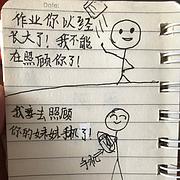 Date:
作业你以经
长大了!我不能
在照顾你了!
我要去照顾
你的妹妹手机了!
手机